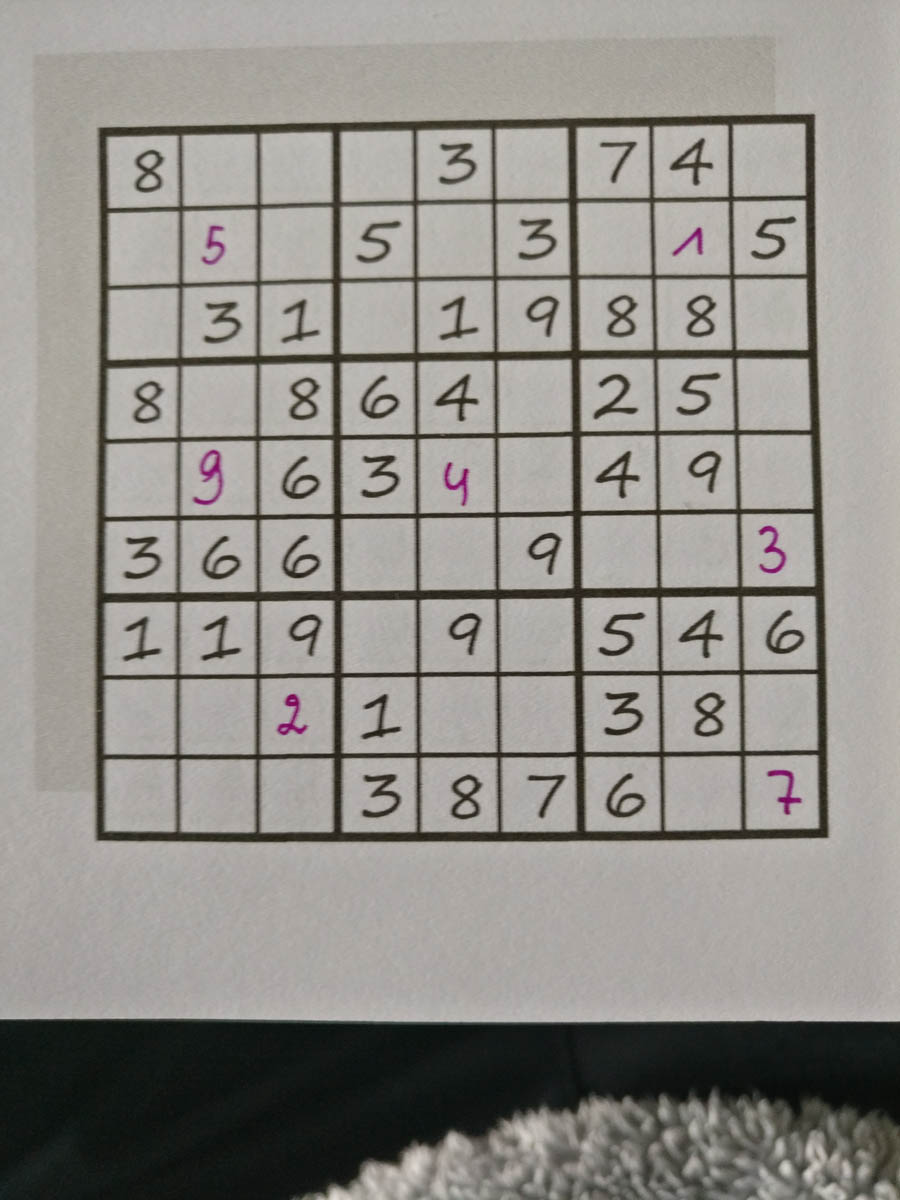 8 3 7 4
5 5 3 1 5
3 1 1 9 8 8
8 8 6 4 2 5
9 6 3 4 4 9
3 6 6 9 3
1 1 9 9 5 4 6
2 1 3 8
3 8 7 6 7